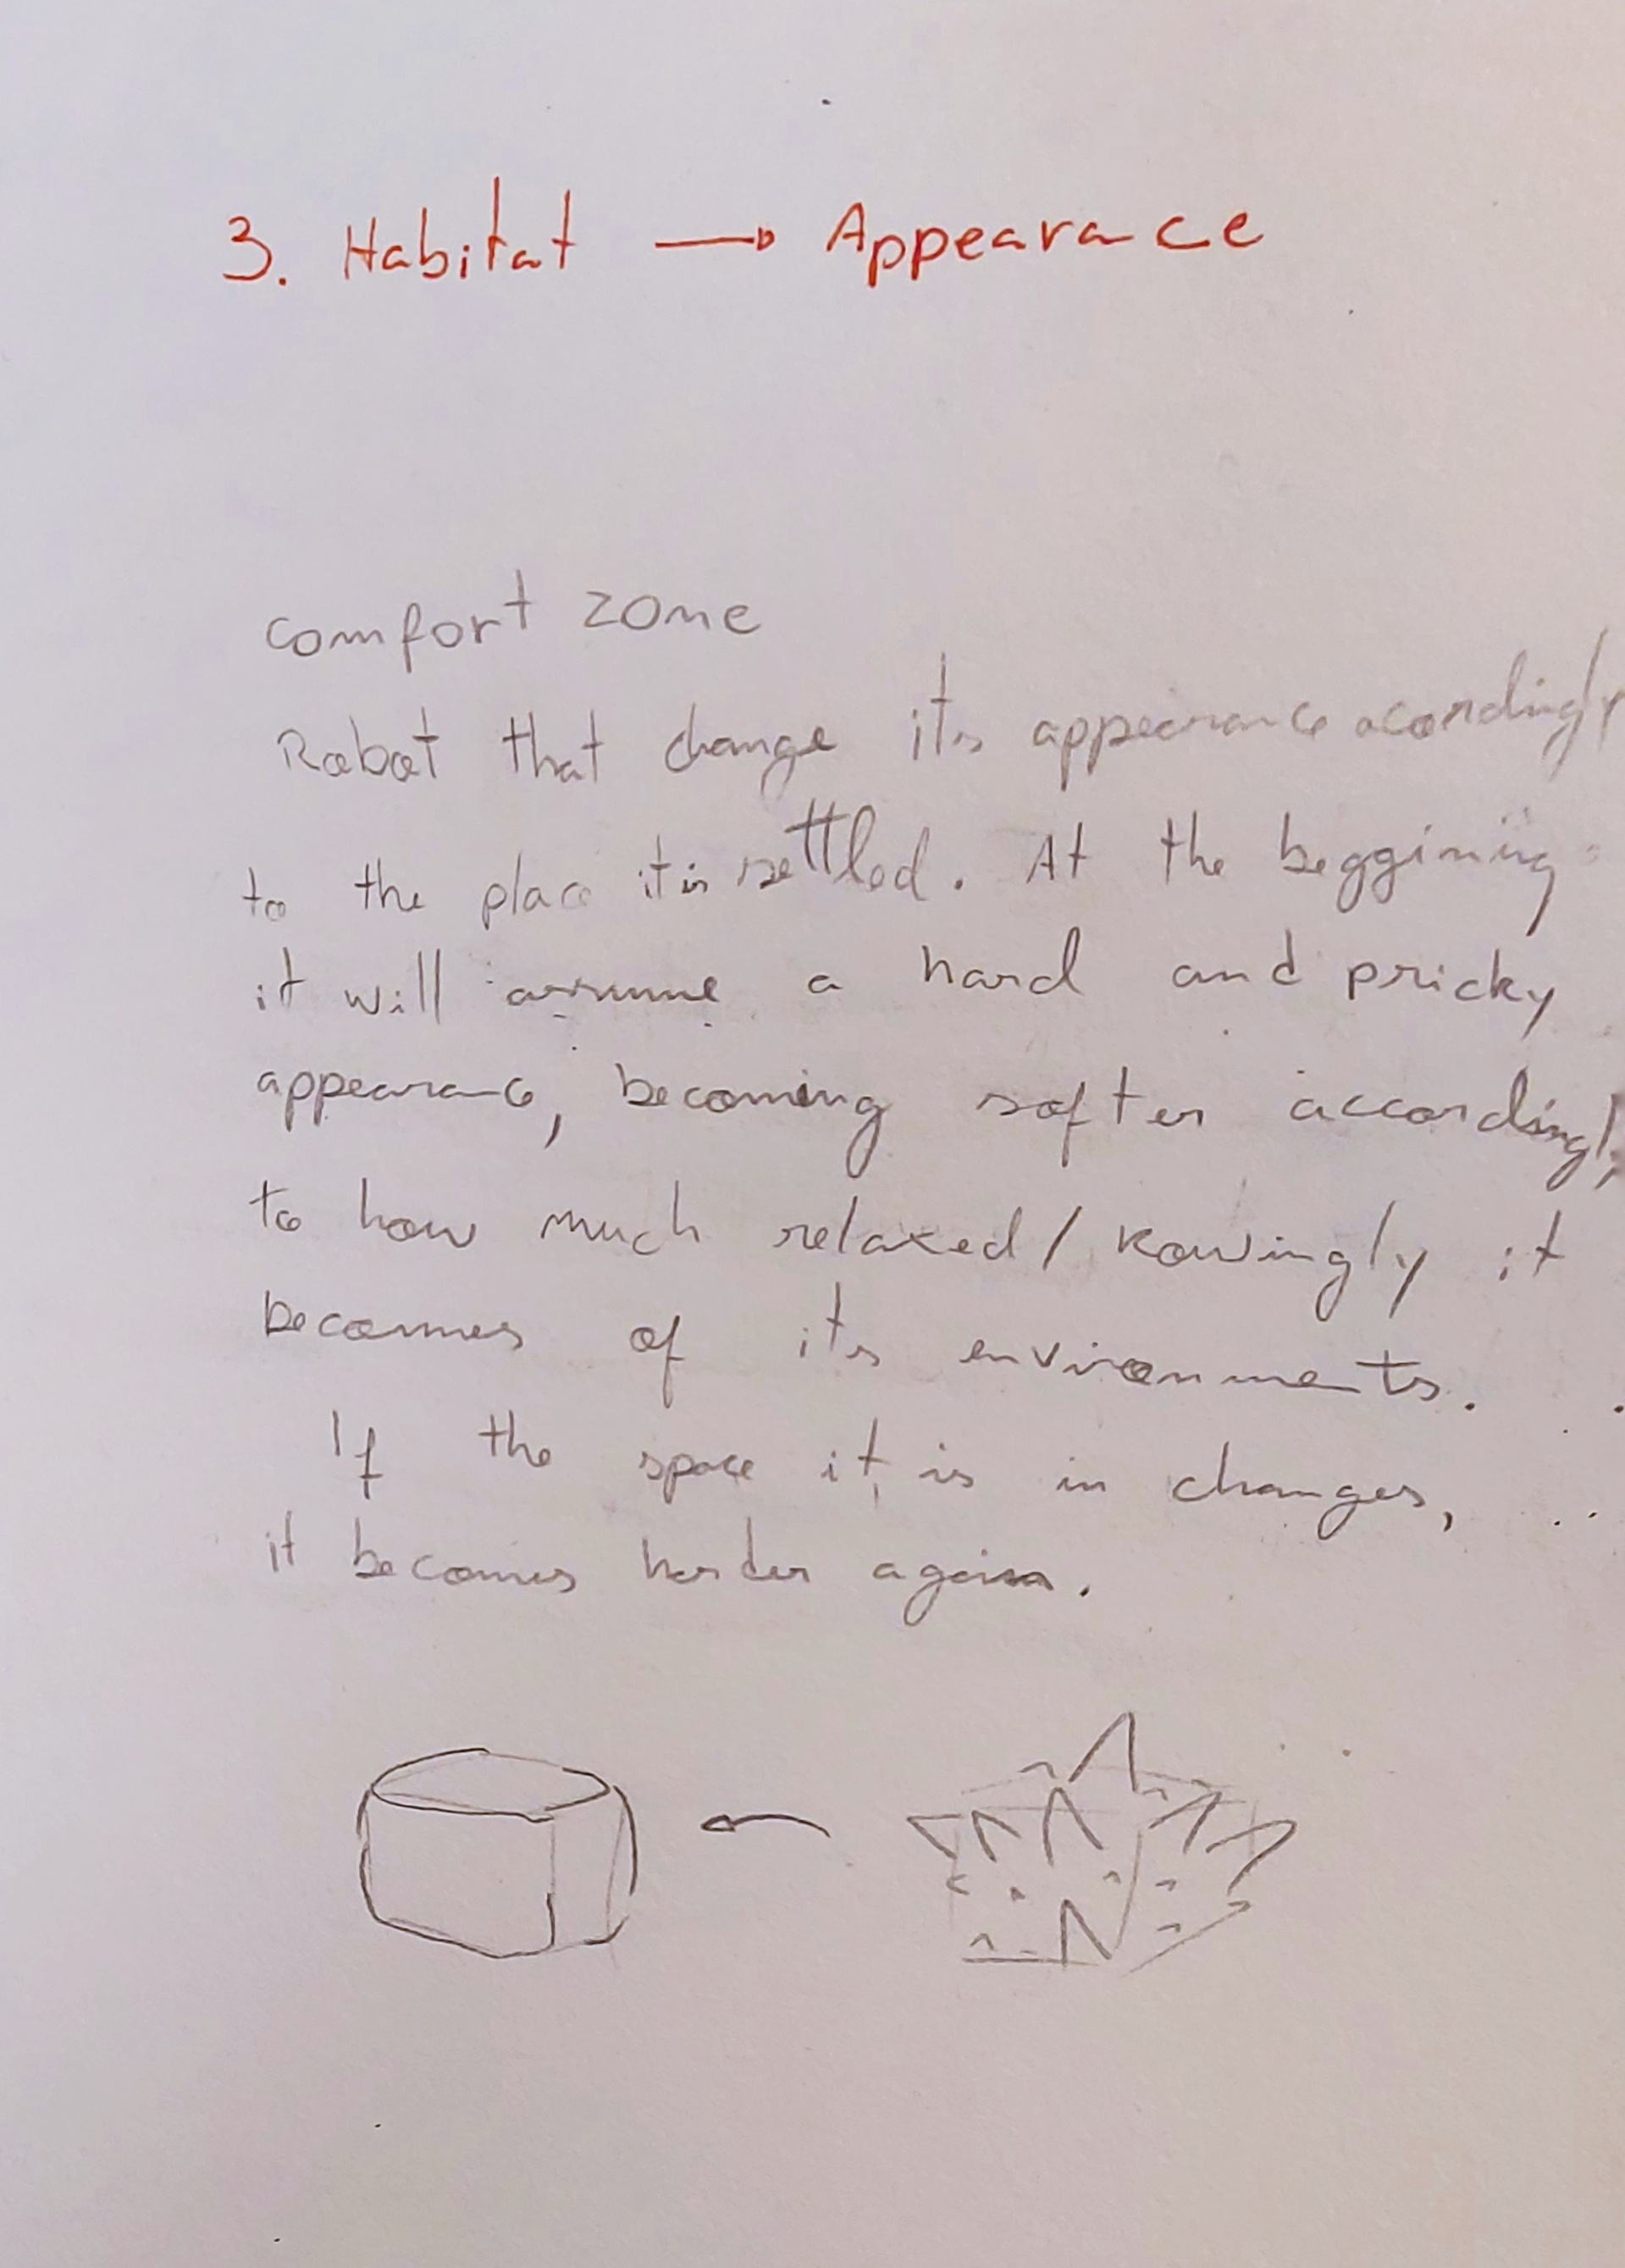 3. Habitat → Appearance
comfort zone
Robot that change its appearance acordingly
to the place it is settled. At the beggining
it will assume a hard and pricky
appearance, becoming softer accordingly
to how much relaxed / kowingly it
becomes of its environments.
If the space it is in changes,
it becomes harder again.